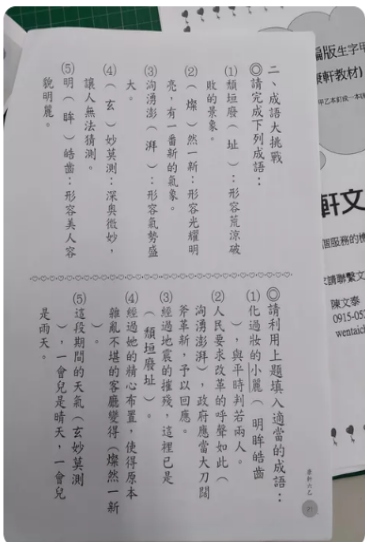 二、成語大挑戰
◎請完成下列成語：
(1)頹垣廢（址）：形容荒涼破
敗的景象。
(2)（燦）然一新：形容光耀明
亮，有一番新的氣象。
(3)洶湧澎（湃）：形容氣勢盛
大。
(4)（玄）妙莫測：深奧微妙，
讓人無法猜測。
(5)明（眸）皓齒：形容美人容
貌明麗。
◎請利用上題填入適當的成語：
(1)化過妝的小麗（明眸皓齒
），與平時判若兩人。
(2)人民要求改革的呼聲如此（
洶湧澎湃），政府應當大刀闊
斧革新，予以回應。
(3)經過地震的摧殘，這裡已是
（頹垣廢址）。
(4)經過她的精心布置，使得原本
雜亂不堪的客廳變得（燦然一新
）。
(5)這段期間的天氣（玄妙莫測
），一會兒是晴天，一會兒
是雨天。
編版生字甲
康軒教材)
軒文
個服務的機
請聯繫文
陳文泰
0915-05
wentaich